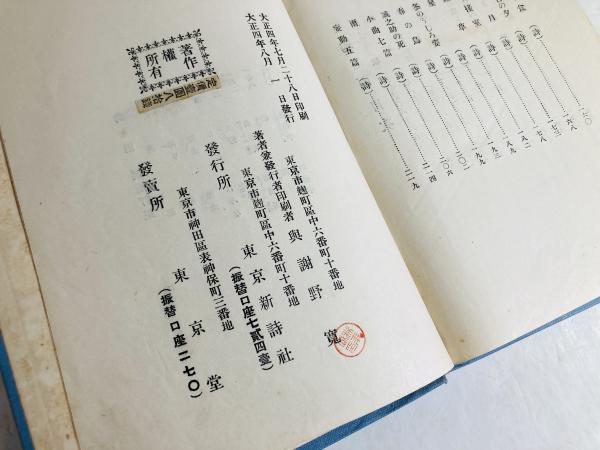 食
の夕
月
室
草
星
冬のうしろ姿
春の鳥
誠之助の死
小曲七篇
匣
妄動五篇
(詩)…………一六〇
(詩)…………一六八
(詩)…………一七三
(詩)…………一七八
(詩)…………一八二
(詩)…………一九二
(詩)…………一九三
(詩)…………一九九
(詩)…………二〇二
(詩)…………二〇六
(詩)…………二一四
(詩)…………二一九
大正四年七月二十八日印刷
大正四年八月一日發行
著作權所有
定價壹圓八拾錢
東京市麹町區中六番町十番地
著者兼發行者印刷者 與謝野寬
東京市麹町區中六番町十番地
發行所 東京新詩社
(振替口座七貳四臺)
東京市神田區表神保町三番地
發賣所 東京堂
(振替口座二七〇)